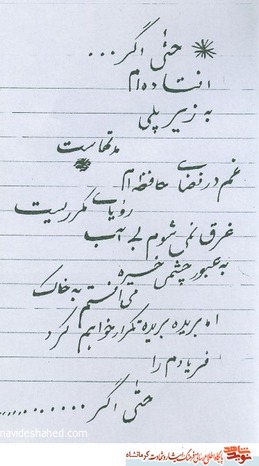 حتی اگر...
افتاده ام
به زیر پلی
مدتهاست
غم در فضای حافظه ام
رؤیای مکرریست
غرق نمی شوم بی آب
به عبور چشمی خیره
می افتم به خاک
اما بریده بریده تکرار خواهم کرد
فریادم را
حتی اگر............
navideshahed.com
نوید شاهد
پایگاه اطلاع رسانی فرهنگ ایثار و شهادت کرمانشاه